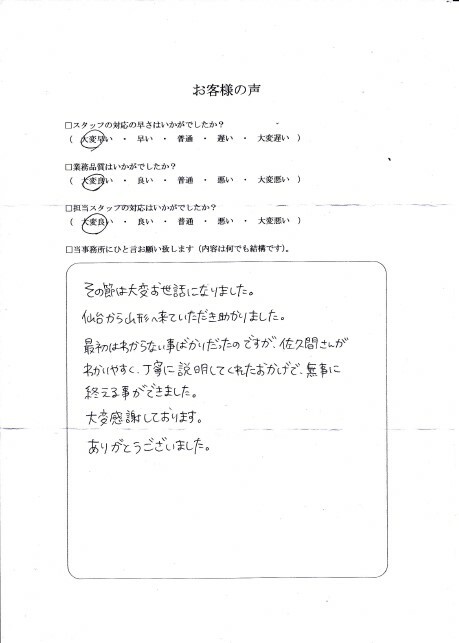 お客様の声
□スタッフの対応の早さはいかがでしたか？
（ 大変早い ・ 早い ・ 普通 ・ 遅い ・ 大変遅い ）
□業務品質はいかがでしたか？
（ 大変良い ・ 良い ・ 普通 ・ 悪い ・ 大変悪い ）
□担当スタッフの対応はいかがでしたか？
（ 大変良い ・ 良い ・ 普通 ・ 悪い ・ 大変悪い ）
□当事務所にひと言お願い致します（内容は何でも結構です）。
その節は大変お世話になりました。
仙台から山形へ来ていただき助かりました。
最初はわからない事ばかりだったのですが、佐久間さんが
わかりやすく、丁寧に説明してくれたおかげで、無事に
終える事ができました。
大変感謝しております。
ありがとうございました。